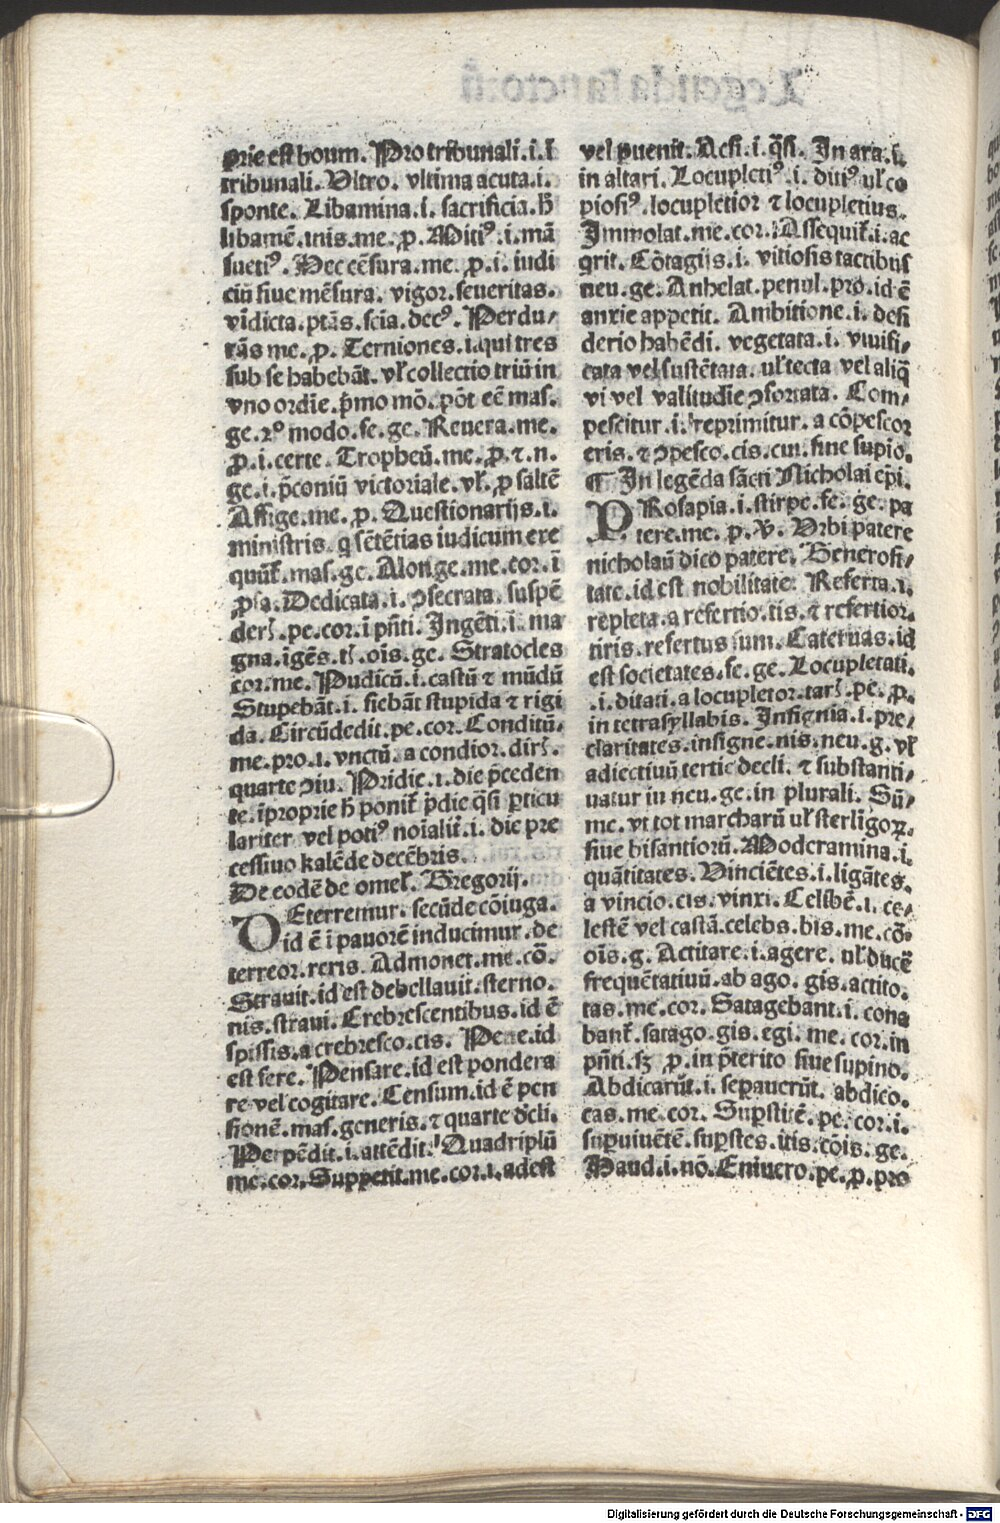 prie est boum. Pro tribunali .i. ī
tribunali. Vltro. vltima acuta .i.
sponte. Libamina .i. sacrificia. h̄
libamē. inis. me. ꝓ. Mitiꝰ .i. mā
suetiꝰ. Hec cēsura. me. ꝓ. i. iudi
ciū siue mēsura. vigor. seueritas.
vīdicta. ptās. scīa. decꝰ. Perdu⸗
rās me. ꝓ. Terniones .i. qui tres
sub se habebāt. vl̄ collectio triū in
vno ordīe. p̄mo mō. pōt eē mas.
ge. 2º modo. fe. ge. Reuera. me.
ꝓ. i. certe. Tropheū. me. ꝓ. ⁊. n.
ge. i. p̄coniū victoriale. vl̄. ꝓ saltē
Affige. me. ꝓ. Questionarijs .i.
ministris. q sētētias iudicum exe
quūt̄. mas. ge. Alonge. me. cor. ī
ꝓsa. Dedicata .i. ꝯsecrata. suspē
der̄. pe. cor. ī pn̄ti. Ingēti .i. ma
gna. īgēs. tl̄. oīs. ge. Stratocles
cor. me. Pudicū .i. castū ⁊ mūdū
Stupebāt .i. fiebāt stupida ⁊ rigi
da. Circūdedit. pe. cor. Conditū.
me. pro. i. vnctū. a condior. dir̄.
quarte ꝯiu. Pridie .i. die p̄ceden
te. īproprie h̄ ponit̄ p̄die q̄si ꝑticu
lariter vel potiꝰ noīalit̄ .i. die pre
cessiuo kalēde decēbris.
De eodē de omel̄. Gregorij.
DEterremur. secūde cōiuga.
id ē ī pauorē inducimur. de
terreor. reris. Admonet. me. cō.
Strauit. id est debellauit. sterno.
nis. straui. Crebrescentibus. id ē
spissis. a crebresco. cis. Pene. id
est fere. Pensare. id est pondera
re vel cogitare. Censum. id ē pen
sionē. mas. generis. ⁊ quarte dcli.
Perpēdit .i. attēdit. Quadriplū
me. cor. Suppetit. me. cor. i. adest
vel ꝓuenit. Acsi .i. q̄si. In ara .i.
in altari. Locupletiꝰ .i. ditiꝰ vl̄ co
piosiꝰ. locupletior ⁊ locupletius.
Immolat. me. cor. Assequit̄ .i. ac
qrit. Cōtagijs .i. vitiosis tactibus
neu. ge. Anhelat. penul. pro. id ē
anxie appetit. Ambitione .i. desi
derio habēdi. vegetata .i. viuifi⸗
cata vel sustētata. vl̄ tecta vel aliq̄
vi vel valitudīe ꝯfortata. Com⸗
pescitur .i. reprimitur. a cōpescor
eris. ⁊ ꝯpesco. cis. cui. sine supio.
¶ In legēda sācti Nicholai epi.
PRosapia .i. stirpe. fe. ge. pa
tere. me. p. v. Vrbi patere
nicholaū dico patere. Generosi⸗
tate. id est nobilitate. Referta .i.
repleta. a refertio. tis. ⁊ refertior.
tiris. refertus sum. Cateruas. id
est societates. fe. ge. Locupletati.
.i. ditati. a locupletor. tar̄. pe. ꝓ.
in tetrasyllabis. Insignia .i. pre⸗
claritates. insigne. nis. neu. g. vl̄
adiectiuū tertie decli. ⁊ substanti⸗
uatur in neu. ge. in plurali. Sū⸗
me. vt tot marcharū vl̄ sterlīgoꝝ.
siue bisantiorū. Moderamina .i.
quātitates. Vinciētes .i. ligātes.
a vincio. cis. vinxi. Celibē .i. ce⸗
lestē vel castā. celebs. bis. me. cō⸗
oīs. g. Actitare .i. agere. vl̄ ducē
frequētatiuū. ab ago. gis. actito.
tas. me. cor. Satagebant .i. cona
bant̄. satago. gis. egi. me. cor. in
pn̄ti. sꝫ ꝓ. in p̄terito siue supino.
Abdicarūt .i. separauerūt. abdico.
cas. me. cor. Supstitē. pe. cor. i.
supuiuētē. supstes. itis. cōis. ge.
Haud .i. nō. Enīuero. pe. ꝓ. pro
Digitalisierung gefördert durch die Deutsche Forschungsgemeinschaft - DFG